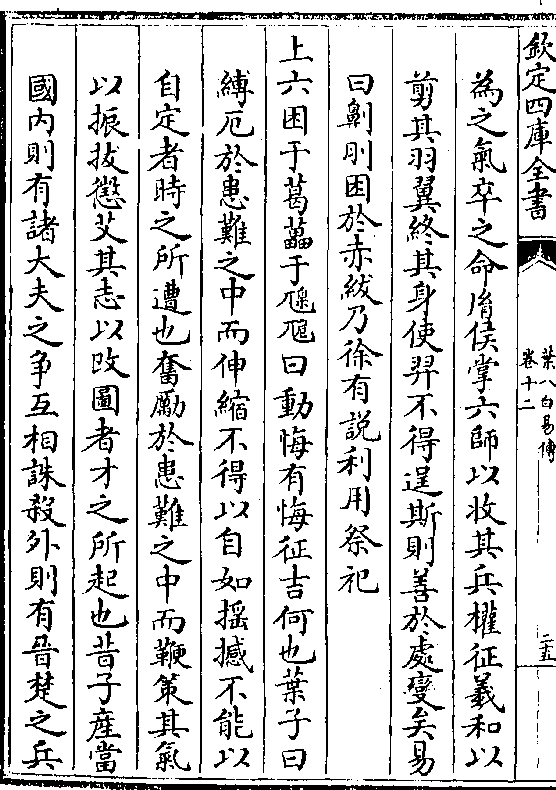 欽定四庫全書
葉八白易傳
卷十二
二五
為之氣卒之命㣧侯掌六師以收其兵權征羲和以
剪其羽翼終其身使羿不得逞斯則善於處變矣易
曰劓刖困於赤紱乃徐有說利用祭祀
上六困于葛藟于臲卼曰動悔有悔征吉何也葉子曰
縛厄於患難之中而伸縮不得以自如揺撼不能以
自定者時之所遭也奮勵於患難之中而鞭策其氣
以振拔懲艾其志以改圖者才之所起也昔子産當
國内則有諸大夫之争互相誅殺外則有晉楚之兵